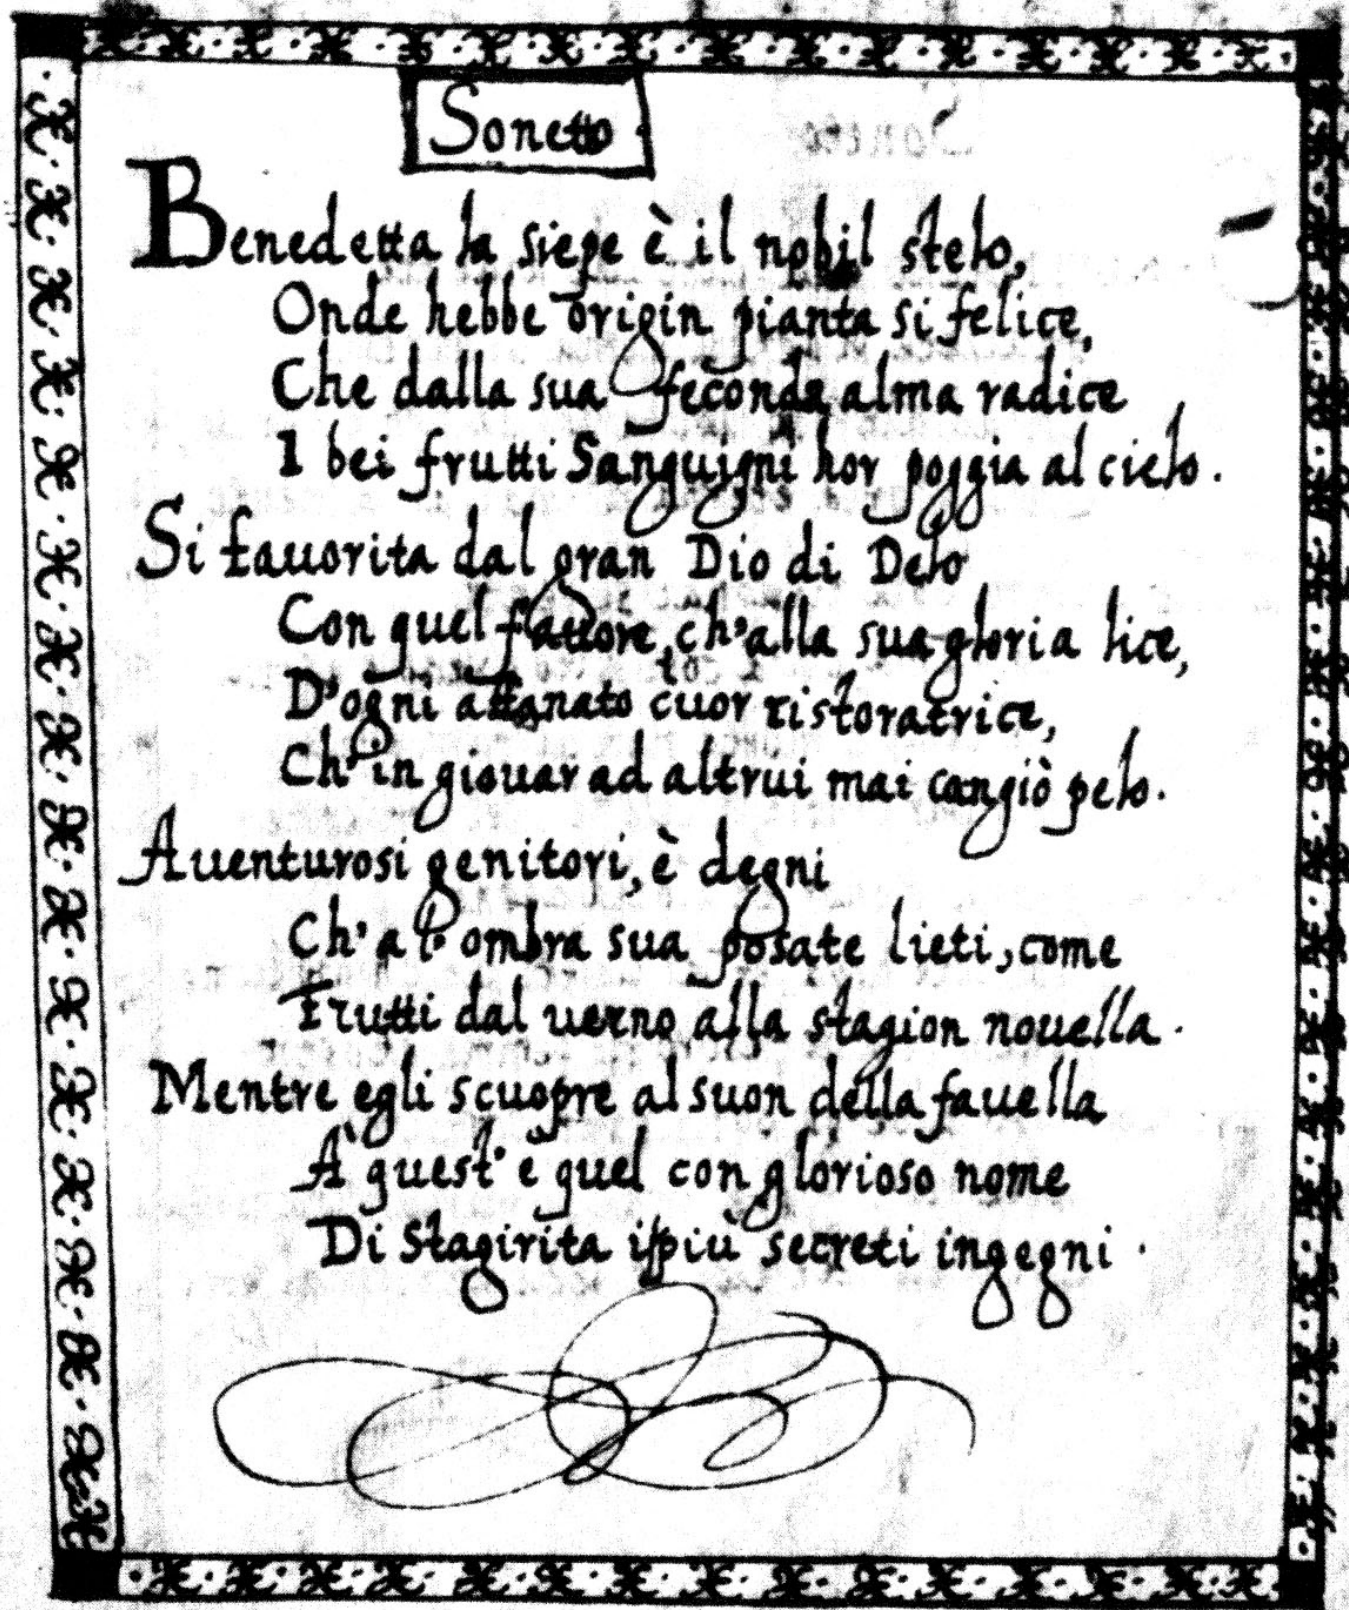 Sonetto.
Benedetta la siepe è il nobil stelo,
Onde hebbe origin pianta si felice,
Che dalla sua feconda alma radice
I bei frutti Sanguigni hor poggia al cielo.
Si fauorita dal gran Dio di Delo
Con quel fauore, ch'alla sua gloria lice,
D'ogni affanato cuor ristoratrice,
Ch' in giouar ad altrui mai cangiò pelo.
Auenturosi genitori, è degni
Ch' a l' ombra sua posate lieti, come
Frutti dal uerno alla stagion nouella.
Mentre egli scuopre al suon della fauella
A quest' è quel con glorioso nome
Di Stagirita più secreti ingegni.